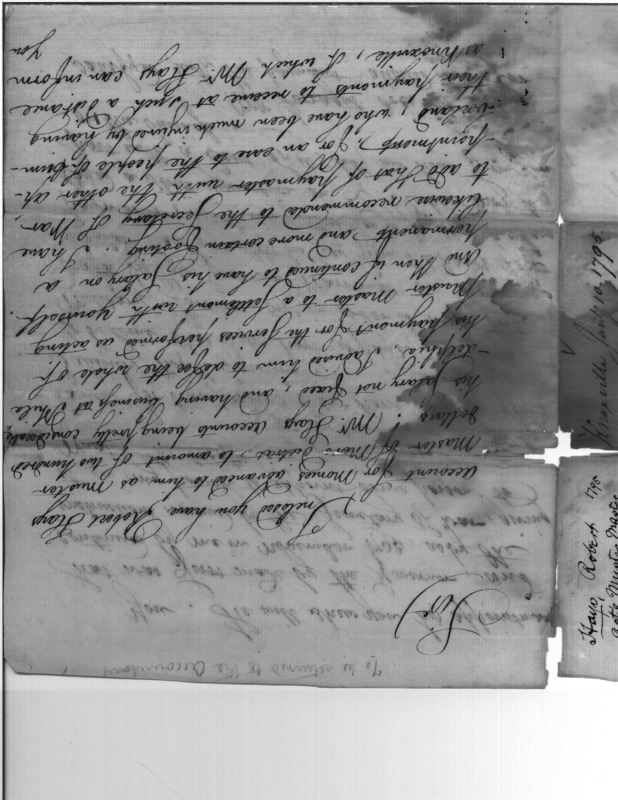 To be returned to the Accountant
Sir
Inclosed you have Robert Hays
account for Monies advanced to him as Muster
Master by Mess.rs to amount of two hundred
dollars. Mr. Hays account being pretty considerable,
his salary not fixed, and having business at Phila
-delphia. I advised him to deffer the whole of
his payments for the services performed as acting
Muster Master to a settlement with yourself.
And then if continued to have his salary on a
permanent and more certain footing. I have
likewise recommended to the Secretary of War,
to add that of paymaster with the other ap-
-pointment, for an ease to the people of Cum-
-berland, who have been much injured by having
their payments to receive at such a distance
as Knoxville, of which Mr. Hays can inform
you
Knoxville Jan.y 10. 1795.
Hays Robert 1795
Muster Master